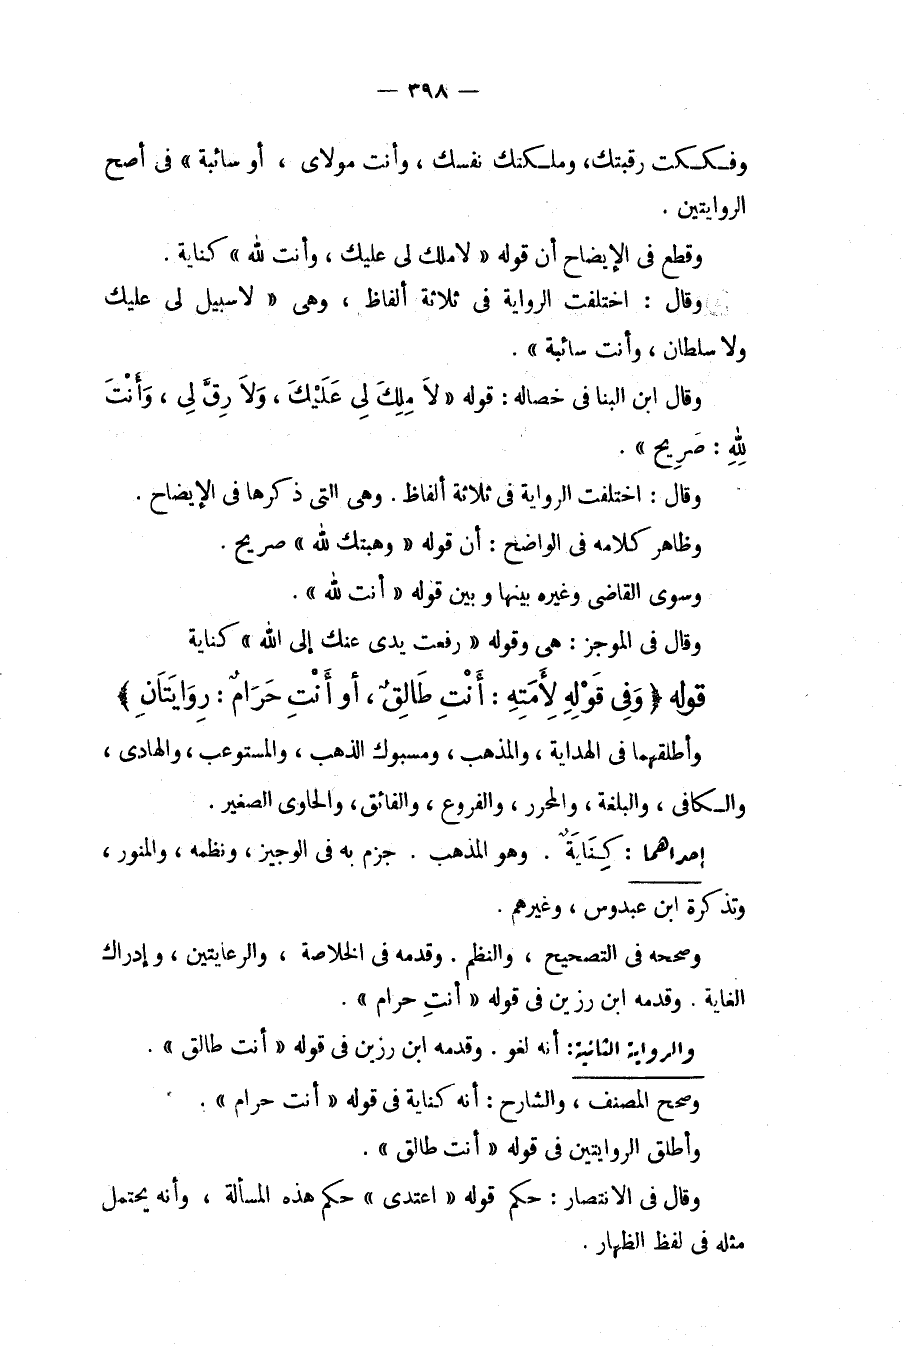 — ٣٩٨ —
وفـكـكت رقبتك، وملـكتك نفسك ، وأنت مولاى ، أو سائبة » فى أصح
الروايتين .
وقطع فى الإيضاح أن قوله « لاملك لى عليك ، وأنت لله » كناية .
وقال : اختلفت الرواية فى ثلاثة ألفاظ ، وهى « لاسبيل لى عليك
ولا سلطان ، وأنت سائبة » .
وقال ابن البنا فى خصاله : قوله « لاَ مِلِكَ لِى عَلَيْكَ ، وَلاَ رِقَّ لِى ، وَأَنْتَ
لِلّهِ : صَرِيح » .
وقال : اختلفت الرواية فى ثلاثة ألفاظ . وهى التى ذكرها فى الإيضاح .
وظاهر كلامه فى الواضح : أن قوله « وهبتك لله » صريح .
وسوى القاضى وغيره بينها و بين قوله « أنت لله » .
وقال فى الموجز : هى وقوله « رفعت يدى عنك إلى الله » كناية
قوله ﴿ وَفِى قَوْلِهِ لِأَمَتِهِ : أَنْتِ طَالِقٌ ، أو أَنْتِ حَرَامٌ : رِوَايَتَانِ ﴾
وأطلقهما فى الهداية ، والمذهب ، ومسبوك الذهب ، والمستوعب ، والهادى ،
والـكافى ، والبلغة ، والمحرر ، والفروع ، والفائق، والحاوى الصغير .
إحداهما : كِنَايَةٌ . وهو المذهب . جزم به فى الوجيز ، ونظمه ، والمنور ،
وتذكرة ابن عبدوس ، وغيرهم .
وصححه فى التصحيح ، والنظم . وقدمه فى الخلاصة ، والرعايتين ، و إدراك
الغاية . وقدمه ابن رزين فى قوله « أنتِ حرام » .
والرواية الثانية: أنه لغو . وقدمه ابن رزين فى قوله « أنت طالق » .
وصحح المصنف ، والشارح : أنه كناية فى قوله « أنت حرام » .
وأطلق الروايتين فى قوله « أنت طالق » .
وقال فى الانتصار : حكم قوله « اعتدى » حكم هذه المسألة ، وأنه يحتمل
مثله فى لفظ الظهار .